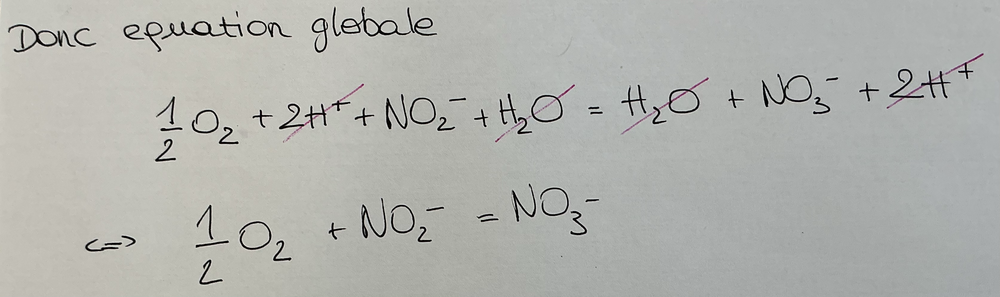 Donc equation globale
1/2 O₂ + 2H⁺ + NO₂⁻ + H₂O = H₂O + NO₃⁻ + 2H⁺
<=> 1/2 O₂ + NO₂⁻ = NO₃⁻